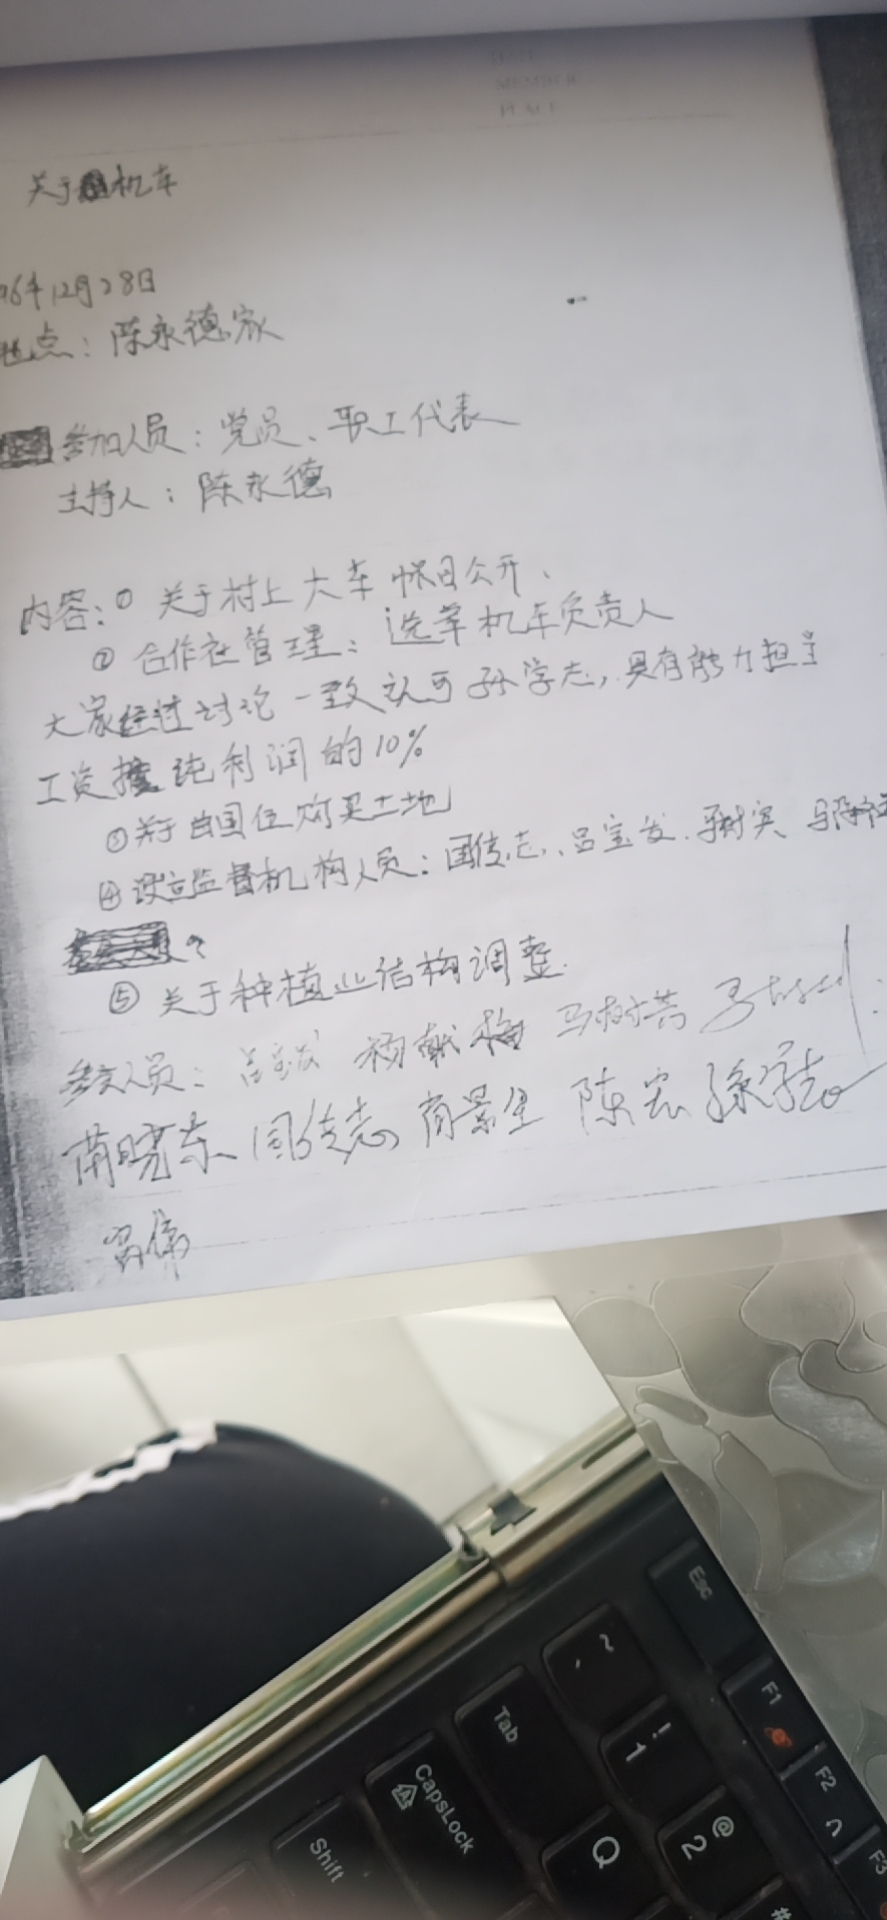 关于机车
96年12月28日
地点：陈永德家
参加人员：党员、职工代表
主持人：陈永德
内容：① 关于村上大车帐目公开、
② 合作社管理：选举机车负责人
大家经过讨论一致认可孙学志，具有能力担当
工资按纯利润的10%
③关于由国伍购买土地
④设立监督机构人员：国传志、吕宝发、
⑤ 关于种植业结构调整.
参会人员：吕宝发 杨献梅 马树芸
蔺晓东 国传志 商景生 陈宏 孙学志
Esc
F1
F2
F3
~
! 1
@ 2
#
Tab
Q
CapsLock
Shift